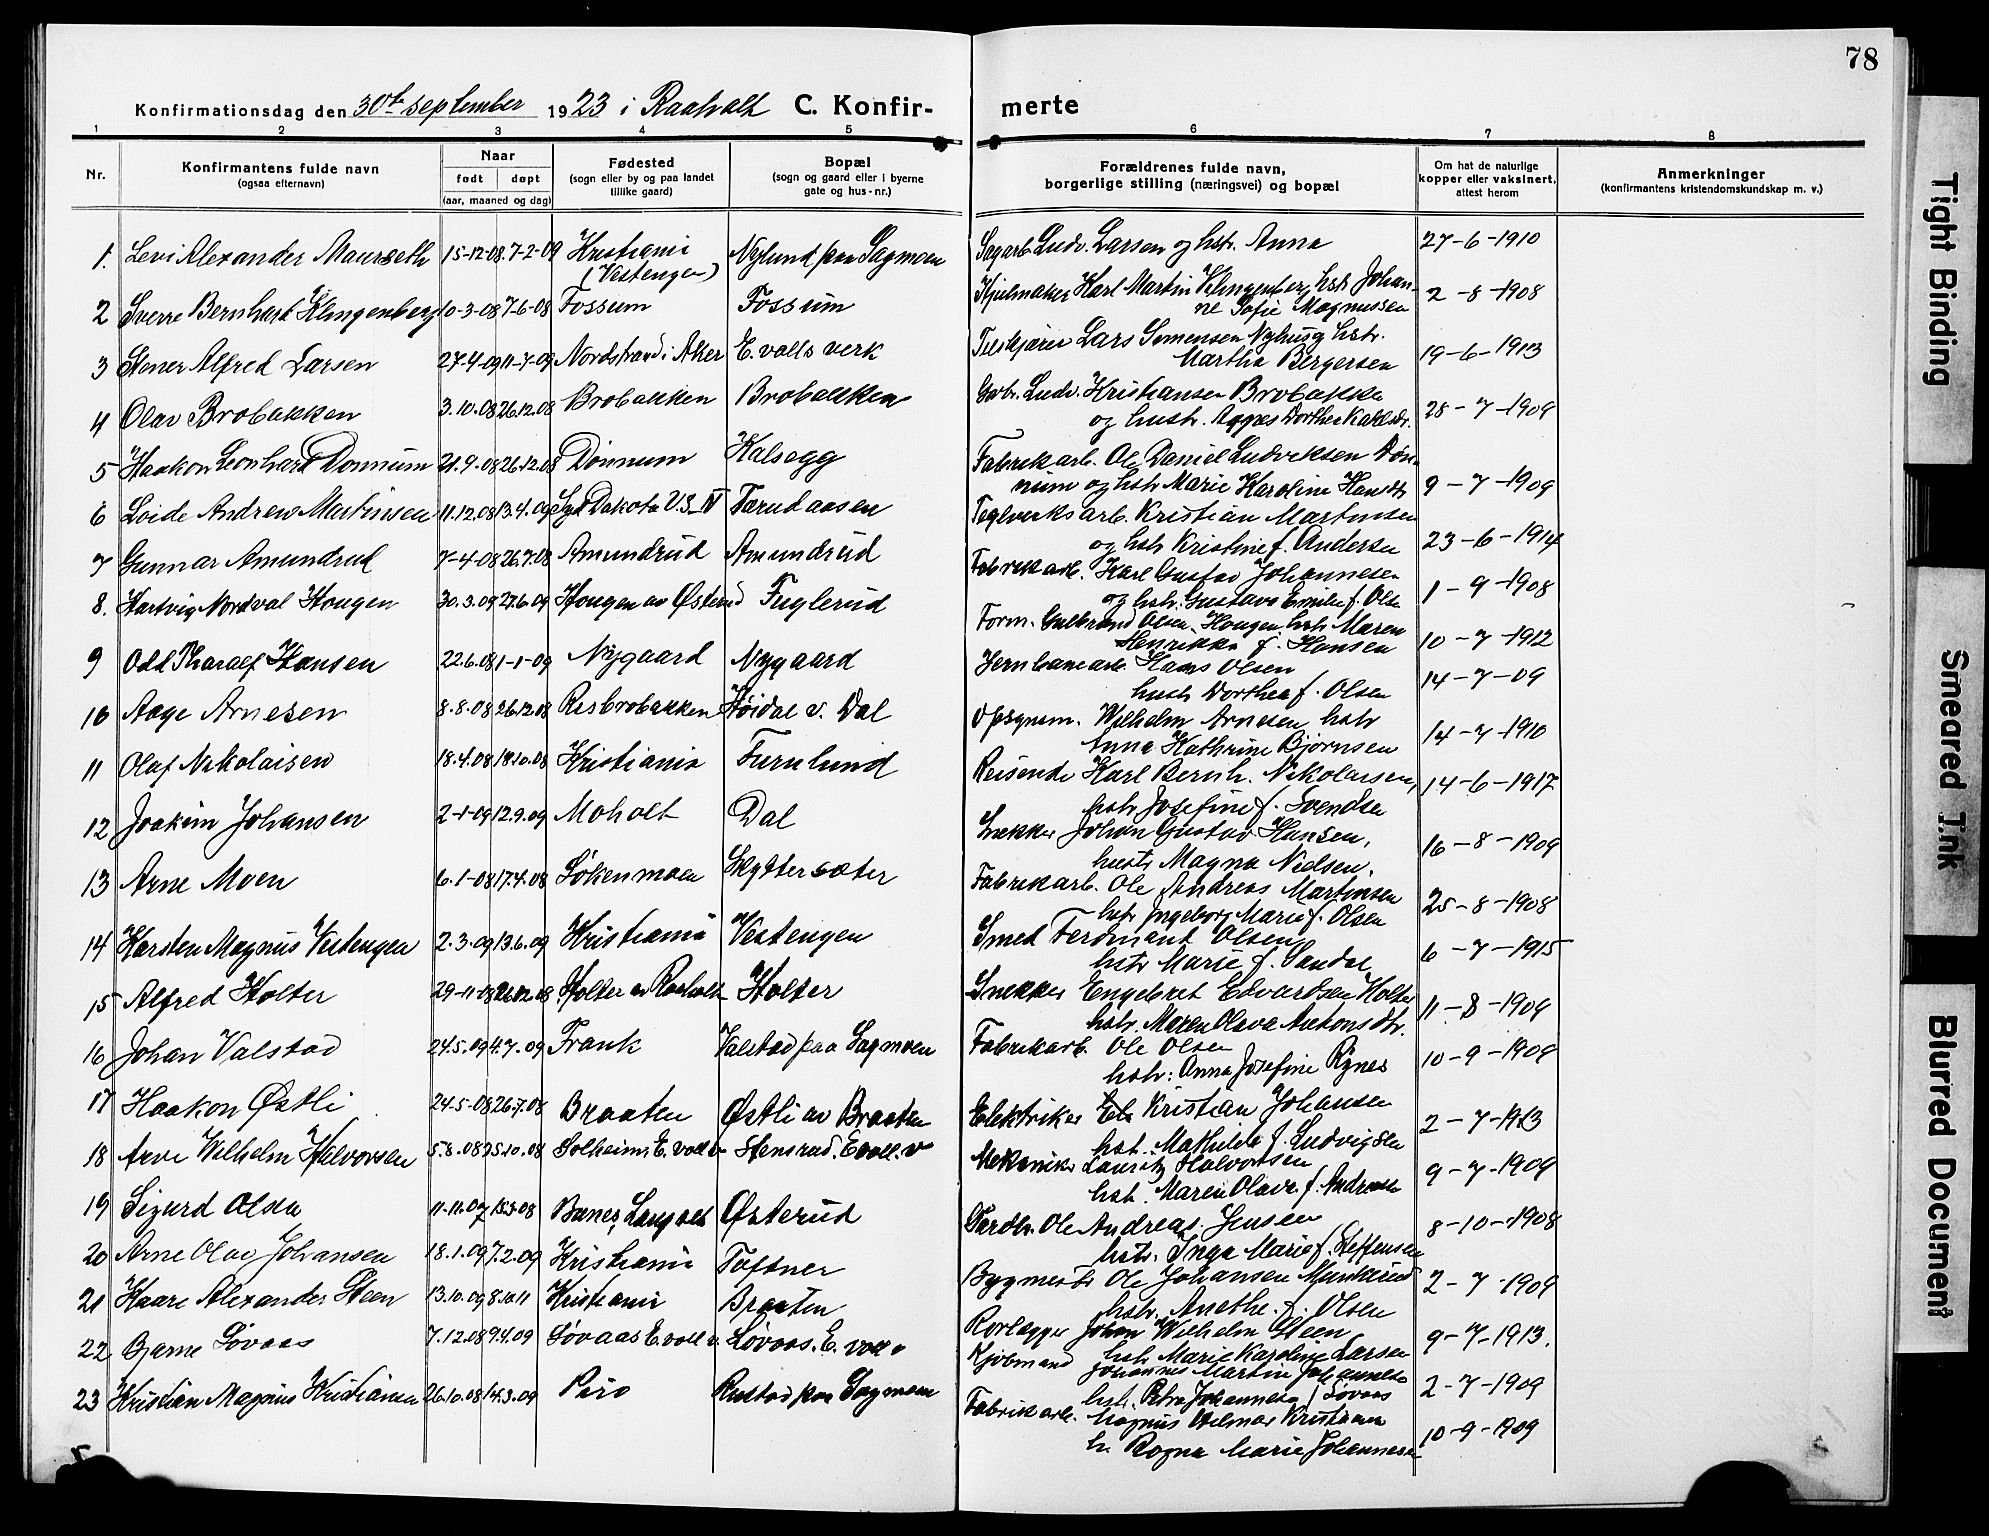 78
Konfirmationsdag den 30te september 1923 i Raaholt C. Konfir-
merte
1 2 3 4 5 6 7 8
Nr.
Konfirmantens fulde navn
(ogsaa efternavn)
Naar
født døpt
(aar, maaned og dag)
Fødested
(sogn eller by og paa landet
tillike gaard)
Bopæl
(sogn og gaard eller i byerne
gate og hus-nr.)
Forældrenes fulde navn,
borgerlige stilling (næringsvei) og bopæl
Om hat de naturlige
kopper eller vaksinert,
attest herom
Anmerkninger
(konfirmantens kristendomskundskap m. v.)
1. Levi Alexander Maurseth 15-12-08. 7-2-09 Kristiania Nylund paa Sagmoen
(Vestengen)
Sagarb. Ludv. Larsen og hstr. Anna 27-6-1910
2 Sverre Bernhart Klingenberg 10-3-08 7-6-08 Fossum Fossum
Hjulmaker Karl Martin Klingenberg hstr Johan-
ne Sofie Magnussen 2-8-1908
3 Stener Alfred Larsen 27-4-09 11-7-09 Nordstrand i Aker E. volls verk
Lars Nyhus og hstr.
Martha Bergersen 19-6-1913
4 Olav Brobakken 3.10.08 26.12.08 Brobakken Brobakken
Ludv. Kristiansen Brobakken
og hustr. Agnes Dorthea 28-7-1909
5 Haakon Leonhard Dønnum 21.9.08 26.12.08 Dønnum Kalsegg
Fabrikarb. Ole Daniel Ludviksen Døn-
num og hstr Marie Karoline Hansdtr 9-7-1909
6 Loide Andrew Martinsen 11.12.08 13.4.09 Syd Dakota U.S. Tærudaasen
Teglverksarb. Kristian Martinsen
og hstr Kristine f. Andersen 23-6-1914
7 Gunnar Amundrud 7-4-08 26.7.08 Amundrud Amundrud
Fabrikarb. Karl Gustav Johannesen
og hstr. Gustava Emilie f. Olsen 1-9-1908
8. Hartvig Nordval Hougen 30.3.09 27.6.09 Hougen av Østerud Fuglerud
Form. Gulbrand Olsen Hougen hstr Maren
Henrikke f. Hansen 10-7-1912
9 Odd Tharalf Hansen 22.6.08 1-1-09 Nygaard Nygaard
Jernbanearb. Hans Olsen
hustr Dorthea f. Olsen 14-7-09
10 Aage Arnesen 8.8.08 26.12.08 Risbrobakken Høidal v. Dal
Opsynsm. Wilhelm Arnesen hstr
Anna Kathrine Bjørnsen 14-7-1910
11 Olaf Nikolaisen 18.4.08 18.10.08 Kristiania Furulund
Reisende Karl Bernh. Nikolaisen,
hstr Josefine f. Svendsen 14-6-1917
12 Joakim Johansen 2-1-09 12.9.09 Moholt Dal
Snekker Johan Gustav Hansen,
hustr Magna Nielsen. 16-8-1909
13 Arne Moen 6.1-08 17.4.08 Løkenmoen Skyttersæter
Fabrikarb. Ole Andreas Martinsen
hstr Ingeborg Marie f. Olsen 25-8-1908
14 Karsten Magnus Vestengen 2.3.09 13.6.09 Kristiania Vestengen
Smed Ferdinand Olsen
hstr Marie f. Sandal 6-7-1915
15 Alfred Holter 29-11-08 26.12.08 Holter av Raaholt Holter
Snekker Engebret Edvardsen Holter
hstr. Maren Olava Antonsdtr. 11-8-1909
16 Johan Valstad 24.5.09 4.7.09 Frank Valstad paa Sagmoen
Fabrikarb. Ole Olsen
hstr: Anna Josefine Rynes 10-9-1909
17 Haakon Østli 24.5-08 26.7.08 Braaten Østli av Braaten
Elektriker Kristian Johansen
hst. Mathilde f. Ludvigsen 2-7-1913
18 Arve Wilhelm Halvorsen 5.8.08 25.10.08 Solheim E. voll v Stensrud. E voll. v
Mekaniker Lauritz Halvorsen
hst. Maren Olava f. Andreassen 9-7-1909
19 Sigurd Olsen 11.11.07 15.3.08 Bænes, Langset Østerud
Ole Andreas Jensen
hstr. Inga Marie f. Steffensen 8-10-1908
20 Arne Olav Johansen 18.1.09 7.2.09 Kristiania Toftner
Bygmestr Ole Johansen Munkerud
hstr. Anethe f. Olsen 2-7-1909
21 Kaare Alexander Steen 13.10.09 8.10.11 Kristiania Braaten
Rørlægger Johan Wilhelm Steen
hstr Marie Karoline Larsen 9-7-1913.
22 Bjarne Løvaas 7.12.08 9.4.09 Løvaas E. voll v. Løvaas. E. voll v
Kjøbmand Johannes Martin Johannesen
hstr. Petra Johannesen Løvaas 2-7-1909
23 Kristian Magnus Kristiansen 26.10.08 14.3.09 Piro Rustad paa Sagmoen
Fabrikarb. Magnus Hilmar Kristiansen
h. Ragna Marie Johannesen 10-9-1909
Tight Binding
Smeared Ink
Blurred Document